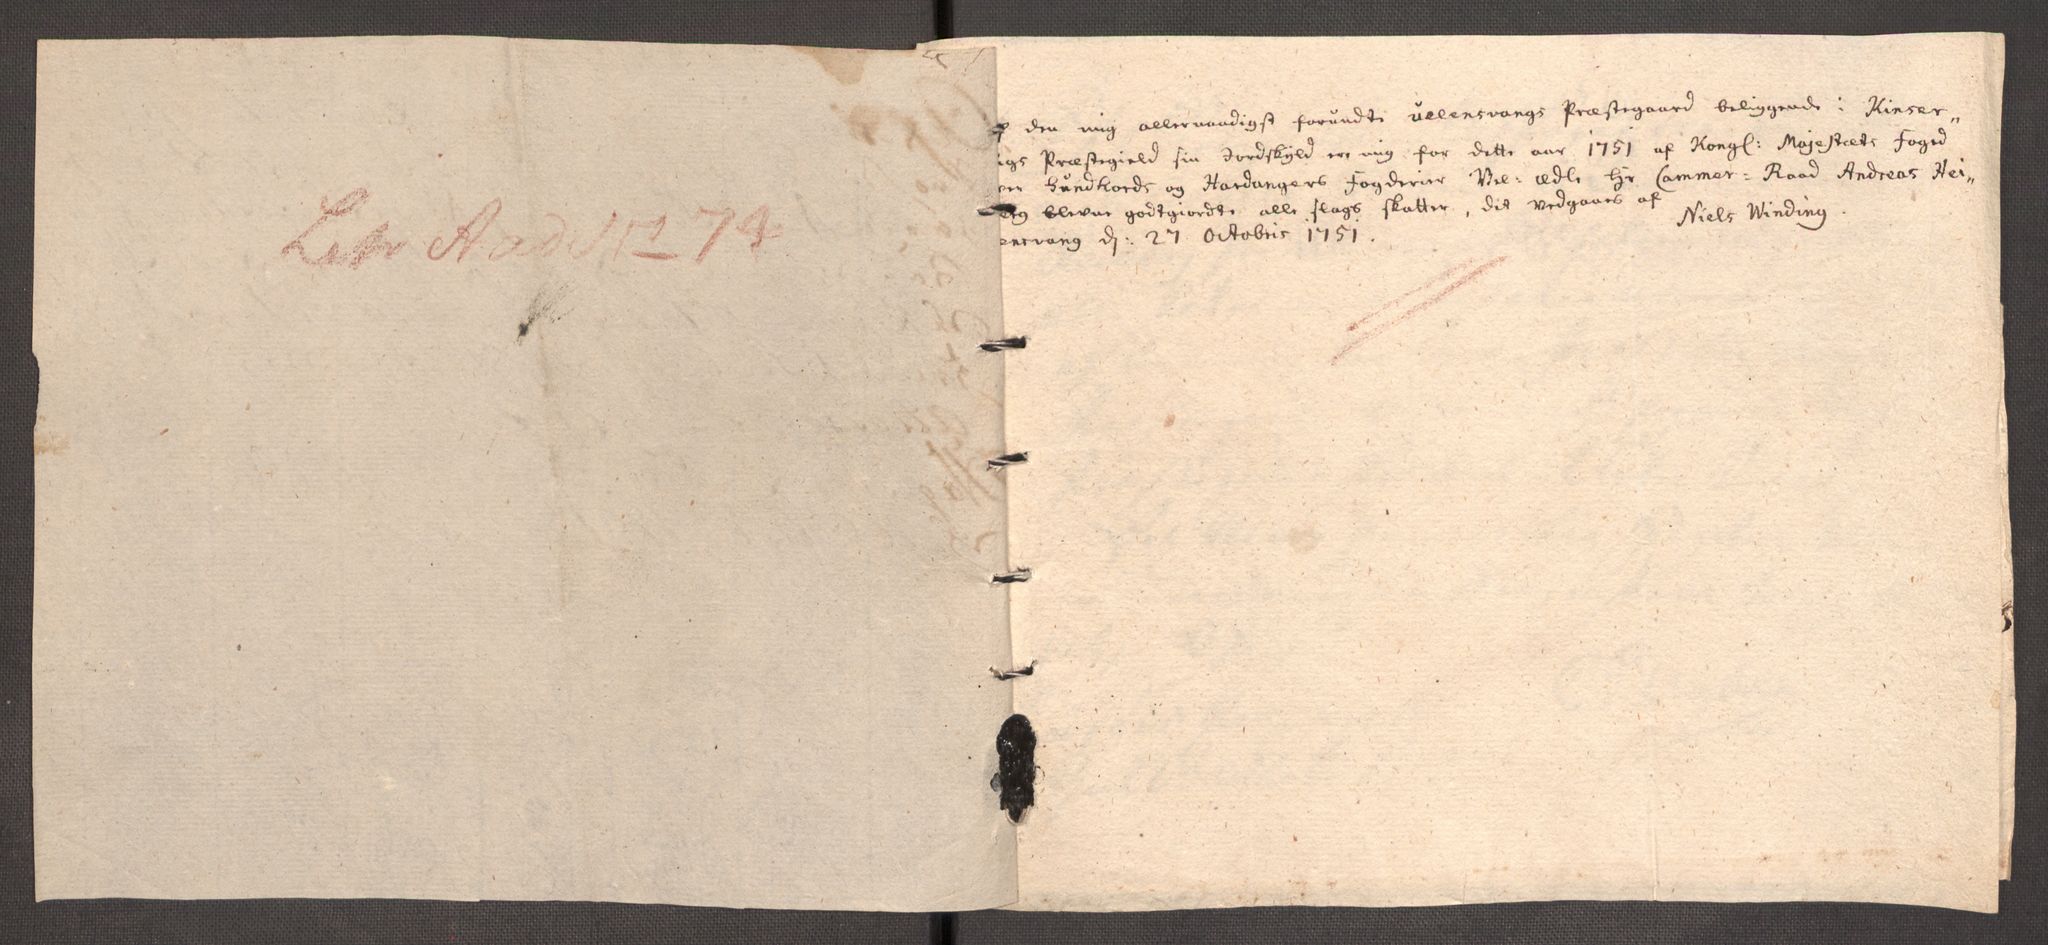 Litr A ad No 74
den mig allernaadigst forundte ullensvangs Præstegaard beliggende i Kinser„
igs Præstegield sin Jordskyld ere mig for dette aar 1751 af Kongl: Majestæts Foged
ver Sundhords og Hardangers Fogderier Vel: ædle Hr Cammer: Raad Andreas Hei„
erg blevne godtgiordte alle slags skatter, dit vedgaaes af
Niels Winding.
ensvang d: 27 Octobris 1751.